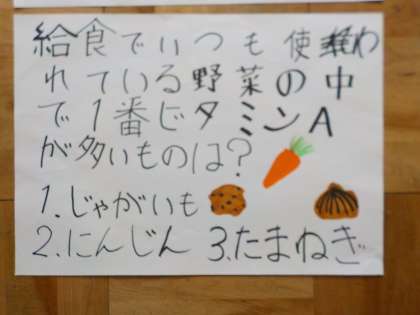 給食でいつも使わ
れている野菜の中
で1番ビタミンA
が多いものは?
1.じゃがいも
2.にんじん 3.たまねぎ